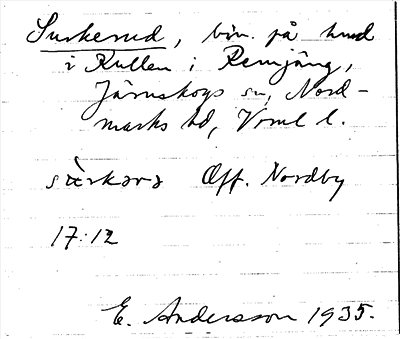 Surkerud, bin. på hund
i Kullen i Remjäng,
Järnskogs sn, Nord-
marks hd, Vrml l.
Off. Nordby
17:12
E. Andersson 1935.